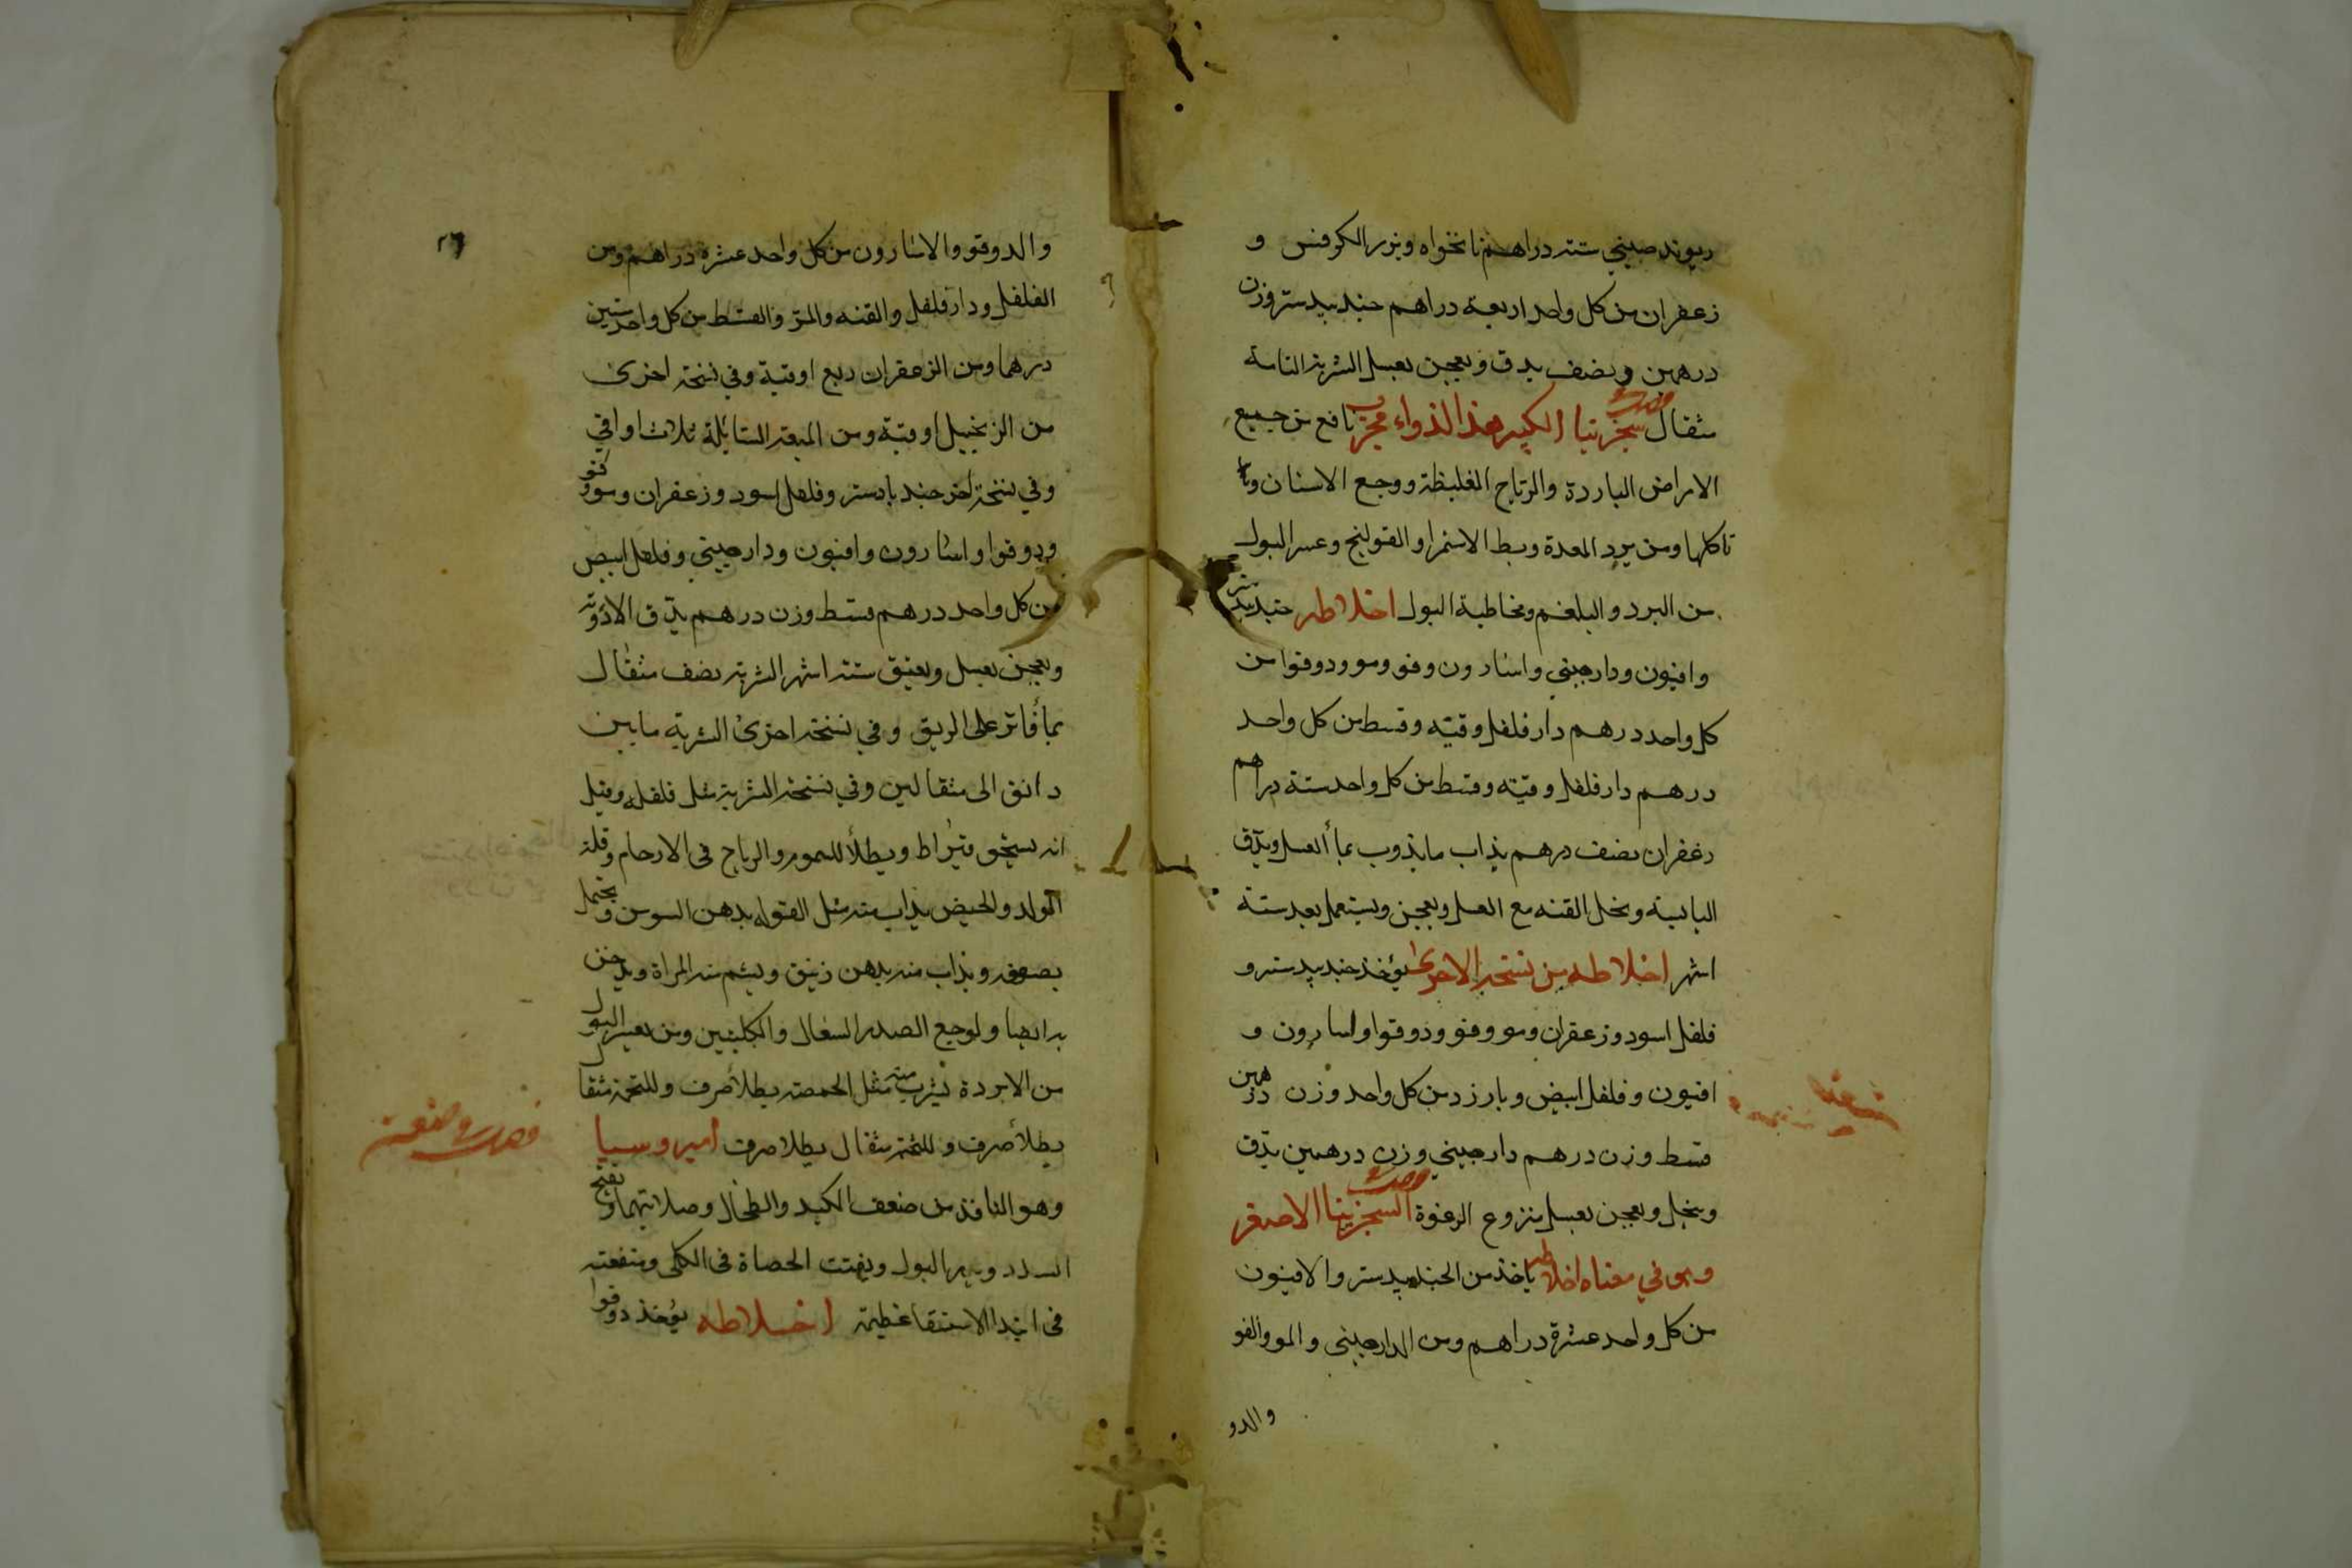 ريوند صيني ستة دراهم نانخواه وبزر الكرفس و
زعفران من كل واحد اربعة دراهم جندبيدستر وزن
درهمين ونصف يدق ويعجن بعسل الشربة التامة
مثقال سجزنيا الكبير هذا الدواء مجرب نافع من جميع
الامراض الباردة والرياح الغليظة ووجع الاسنان
تاكلها ومن برد المعدة وبط الاستمرا والقولنج وعسر البول
من البرد والبلغم ومخاطية البول اخلاطه جندبيدستر
وافيون ودارجيني واسارون وفو ومو ودوقوا من
كل واحد درهم دارفلفل وقنه وقسط من كل واحد
درهم دارفلفل وقنه وقسط من كل واحد ستة دراهم
زعفران نصف درهم يذاب ما يذوب بمأ العسل ويدق
اليابسة ونخل القنه مع العسل ويعجن ويستعمل بعد ستة
اشهر اخلاطه من نسخة الاخرى يؤخذ جندبيدستر و
فلفل اسود وزعفران ومو وفو ودوقوا واسارون و
افيون وفلفل ابيض وبارزد من كل واحد وزن درهمين
قسط وزن درهم دارجيني وزن درهمين يدق
وينخل ويعجن بعسل منزوع الرغوة السجزينا الاصغر
وهو في معناه اخلاطه ياخذ من الجندبيدستر والافيون
من كل واحد عشرة دراهم ومن الدارجيني والمو والفو
والدو
٢٦
والدوقو والاسارون من كل واحد عشرة دراهم ومن
الفلفل ودارفلفل والقنه والمر والقسط من كل واحد ستين
درهما ومن الزعفران ربع اوقية وفي نسخة اخرى
من الزنجبيل اوقية ومن الميعة السائلة ثلاث اواقي
وفي نسخة اخر جندبادستر وفلفل اسود وزعفران ومو وفو
ودوقوا واسارون وافيون ودارجيني وفلفل ابيض
من كل واحد درهم قسط وزن درهم يدق الادوية
ويعجن بعسل ويعتق ستة اشهر الشربة نصف مثقال
بمأ فاتر على الريق وفي نسخة اخرى الشربة ما بين
دانق الى مثقالين وفي نسخة الشربة مثل فلفلة وقيل
انه يستحق قيراط وبطلأ للسموم والرياح في الارحام وقلة
الولد والحيض يذاب منه مثل الفوله بدهن السوسن ويحتمل
بصوفه ويذاب منه بدهن زنبق ويشم منه المراة ويدخن
بدايها ولوجع الصدر السعال والكليتين ومن يعسر البول
من الابردة يشرب منه مثل الحمصة بطلأ صرف وللتخمة مثقا
بطلأ صرف وللتخمة مثقال بطلا صرف اميروسيا
وهو النافذ من ضعف الكبد والطحال وصلابتهما ويفتح
السدد ويدر البول ويفتت الحصاة في الكلى ومنفعته
في ابتدا الاستسقا عظيمة اخلاطه يؤخذ دوقوا